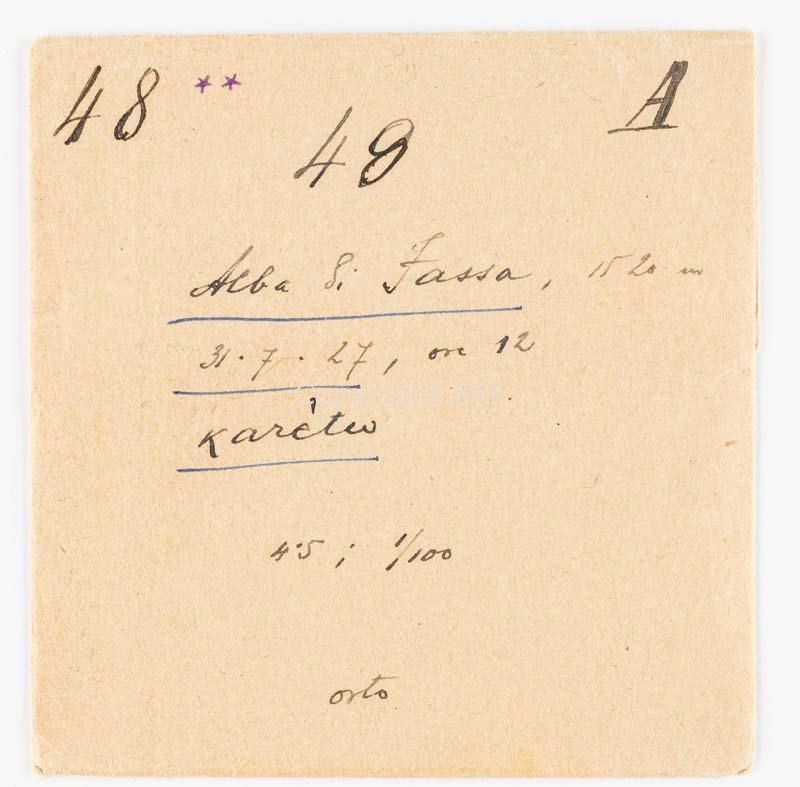 48 ** A
48
Alba di Fassa, 1520 m
31.7.27, ore 12
4.5; 1/100
orto